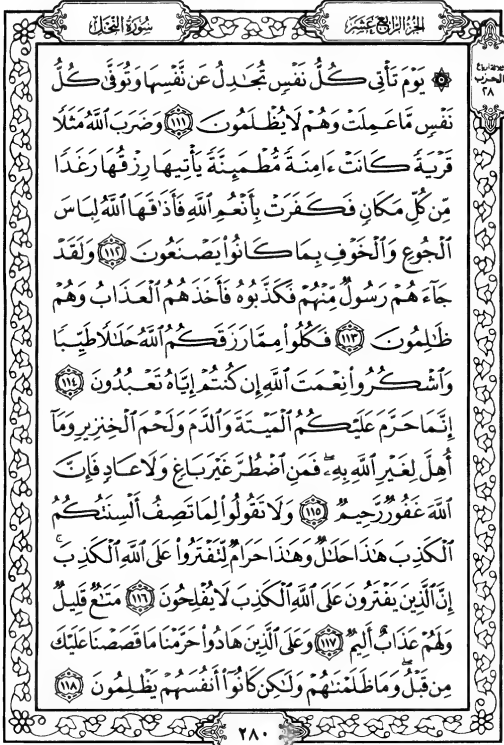 سُورَةُ النَّحْلِ
الجُزءُ الرَّابِعَ عَشَرَ
الحزب
٢٨
۞ يَوْمَ تَأْتِى كُلُّ نَفْسٍ تُجَٰدِلُ عَن نَّفْسِهَا وَتُوَفَّىٰ كُلُّ
نَفْسٍ مَّا عَمِلَتْ وَهُمْ لَا يُظْلَمُونَ ١١١ وَضَرَبَ اللَّهُ مَثَلًا
قَرْيَةً كَانَتْ ءَامِنَةً مُّطْمَئِنَّةً يَأْتِيهَا رِزْقُهَا رَغَدًا
مِّن كُلِّ مَكَانٍ فَكَفَرَتْ بِأَنْعُمِ اللَّهِ فَأَذَٰقَهَا اللَّهُ لِبَاسَ
الْجُوعِ وَالْخَوْفِ بِمَا كَانُوا۟ يَصْنَعُونَ ١١٢ وَلَقَدْ
جَآءَهُمْ رَسُولٌ مِّنْهُمْ فَكَذَّبُوهُ فَأَخَذَهُمُ الْعَذَابُ وَهُمْ
ظَٰلِمُونَ ١١٣ فَكُلُوا۟ مِمَّا رَزَقَكُمُ اللَّهُ حَلَٰلًا طَيِّبًا
وَاشْكُرُوا۟ نِعْمَتَ اللَّهِ إِن كُنتُمْ إِيَّاهُ تَعْبُدُونَ ١١٤
إِنَّمَا حَرَّمَ عَلَيْكُمُ الْمَيْتَةَ وَالدَّمَ وَلَحْمَ الْخِنزِيرِ وَمَآ
أُهِلَّ لِغَيْرِ اللَّهِ بِهِۦ ۖ فَمَنِ اضْطُرَّ غَيْرَ بَاغٍ وَلَا عَادٍ فَإِنَّ
اللَّهَ غَفُورٌ رَّحِيمٌ ١١٥ وَلَا تَقُولُوا۟ لِمَا تَصِفُ أَلْسِنَتُكُمُ
الْكَذِبَ هَٰذَا حَلَٰلٌ وَهَٰذَا حَرَامٌ لِّتَفْتَرُوا۟ عَلَى اللَّهِ الْكَذِبَ ۚ
إِنَّ الَّذِينَ يَفْتَرُونَ عَلَى اللَّهِ الْكَذِبَ لَا يُفْلِحُونَ ١١٦ مَتَٰعٌ قَلِيلٌ
وَلَهُمْ عَذَابٌ أَلِيمٌ ١١٧ وَعَلَى الَّذِينَ هَادُوا۟ حَرَّمْنَا مَا قَصَصْنَا عَلَيْكَ
مِن قَبْلُ ۖ وَمَا ظَلَمْنَٰهُمْ وَلَٰكِن كَانُوٓا۟ أَنفُسَهُمْ يَظْلِمُونَ ١١٨
٢٨٠